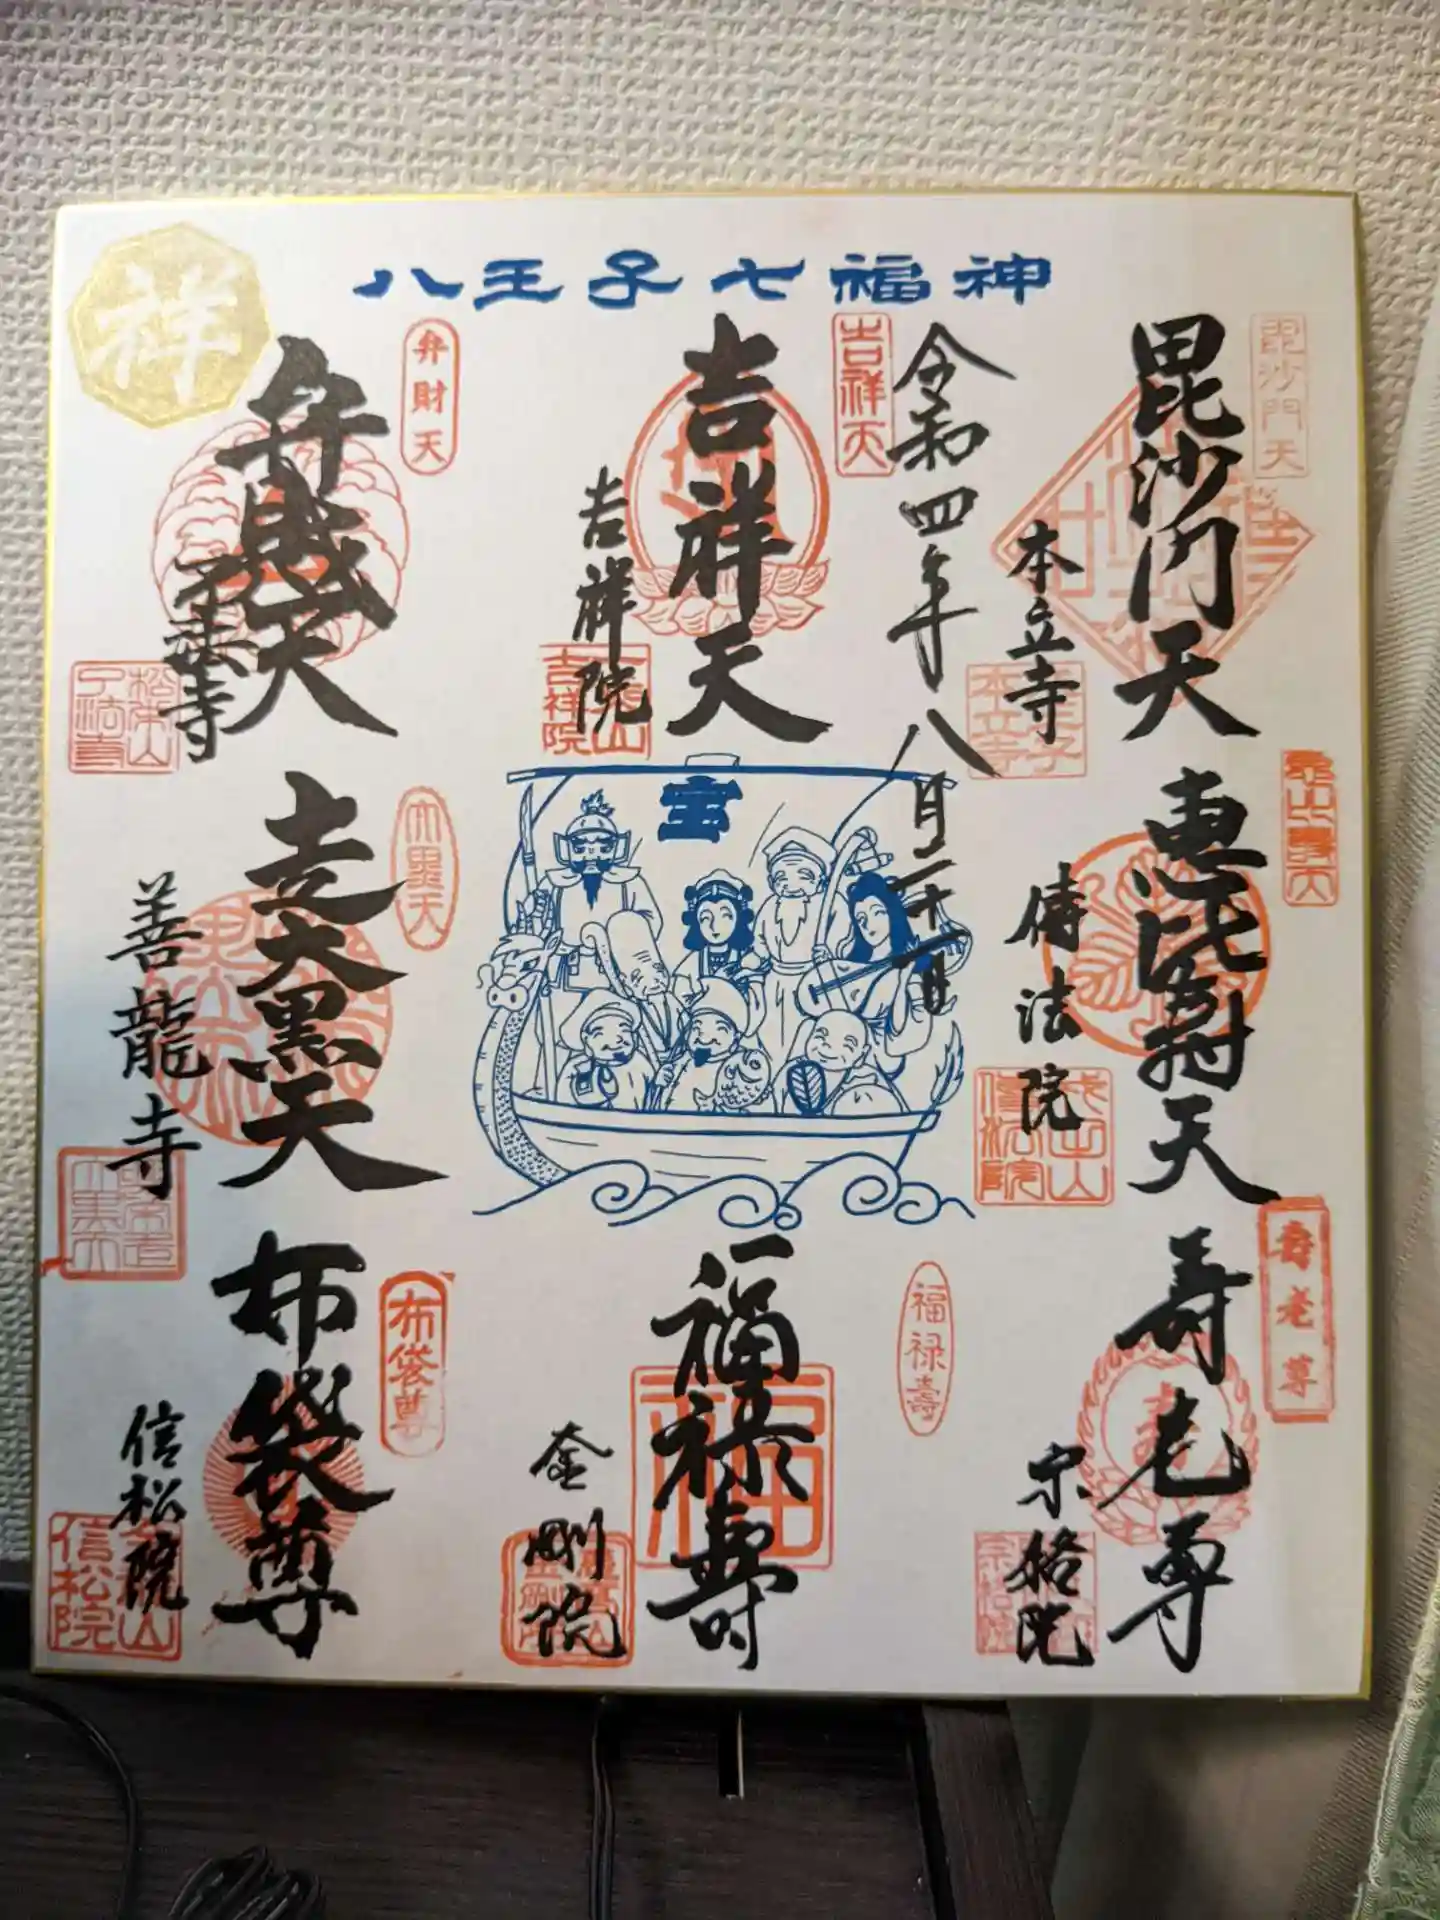 八王子七福神
祥
毘沙門天
毘沙門天
本立寺
本立寺
令和四年八月二十一日
吉祥天
吉祥天
吉祥院
吉祥院
弁財天
弁財天
了法寺
松栄山
了法寺
恵比寿天
傳法院
傳法院
宝
走大黒天
大黒天
善龍寺
寿老尊
壽老尊
宗格院
宗格院
福禄寿
福禄壽
福
金剛院
金剛院
布袋尊
布袋尊
信松院
信松院